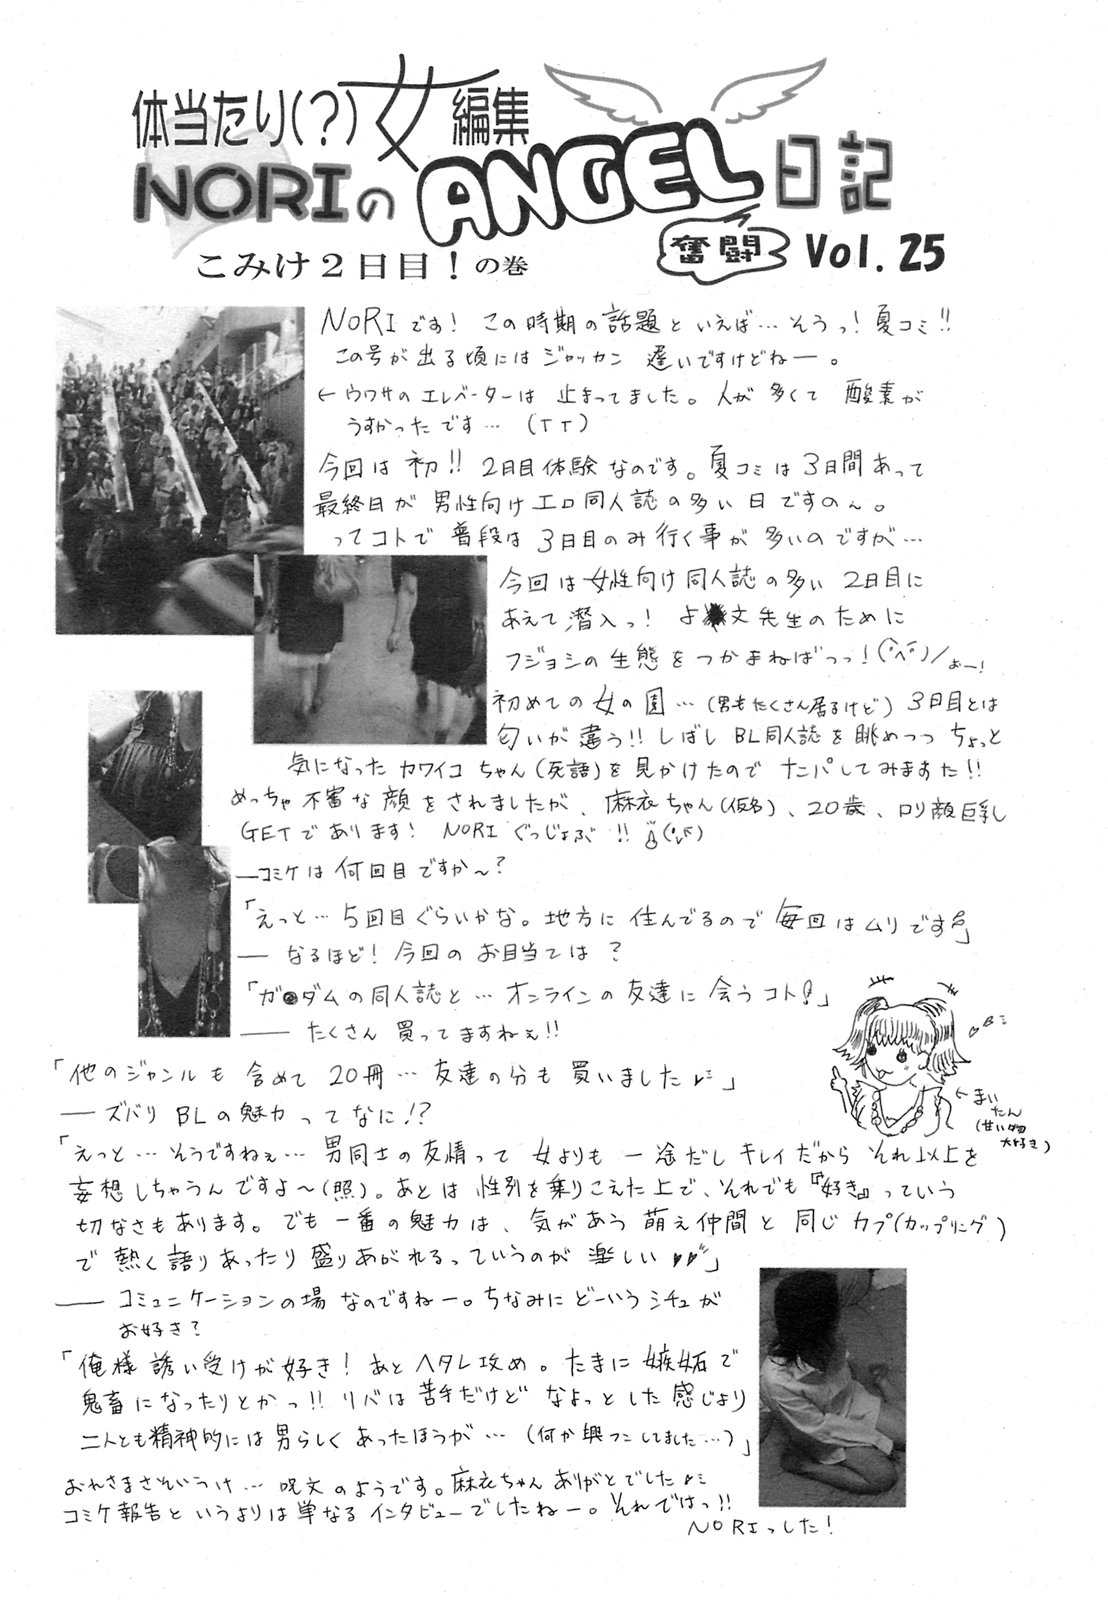 体当たり(?)女編集
NORIのANGEL日記
奮闘 Vol.25
こみけ2日目!の巻
NORIです! この時期の話題といえば…そうっ!夏コミ!!
この号が出る頃にはジャッカン遅いですけどねー。
←ウワサのエレベーターは止まってました。人が多くて酸素が
うすかったです…(TT)
今回は初!!2日目体験なのです。夏コミは3日間あって
最終日が男性向けエロ同人誌の多い日ですのん。
ってコトで普段は3日目のみ行く事が多いのですが…
今回は女性向け同人誌の多い2日目に
あえて潜入っ! よ●文先生のために
フジョシの生態をつかまねばっっ!(^ヘ^)/おー!
初めての女の園…(男もたくさん居るけど)3日目とは
匂いが違う!!しばしBL同人誌を眺めつつちょっと
気になったカワイコちゃん(死語)を見かけたのでナンパしてみますた!!
めっちゃ不審な顔をされましたが、麻衣ちゃん(仮名)、20歳、ロリ顔巨乳
GETであります! NORIぐっじょぶ!!
―コミケは何回目ですか〜?
「えっと…5回目ぐらいかな。地方に住んでるので毎回はムリです」
― なるほど!今回のお目当ては?
「ガ●ダムの同人誌と…オンラインの友達に会うコト!」
― たくさん買ってますねぇ!!
「他のジャンルも含めて20冊…友達の分も買いました♪」
― ズバリBLの魅力ってなに!?
「えっと…そうですねぇ…男同士の友情って女よりも一途だしキレイだからそれ以上を
妄想しちゃうんですよ〜(照)。あとは性別を乗りこえた上で、それでも『好き』っていう
切なさもあります。でも一番の魅力は、気があう萌え仲間と同じカプ(カップリング)
で熱く語りあったり盛りあがれるっていうのが楽しい♥♥」
← まい
たん
(甘い物
大好き)
― コミュニケーションの場なのですねー。ちなみにどーいうシチュが
お好き?
「俺様誘い受けが好き!あとヘタレ攻め。たまに嫉妬で
鬼畜になったりとかっ!!リバは苦手だけどなよっとした感じより
二人とも精神的には男らしくあったほうが…(何か興フンしてました…)」
おれさまさそいうけ…呪文のようです。麻衣ちゃんありがとでした♪
コミケ報告というよりは単なるインタビューでしたねー。それではっ!!
NORIっした!